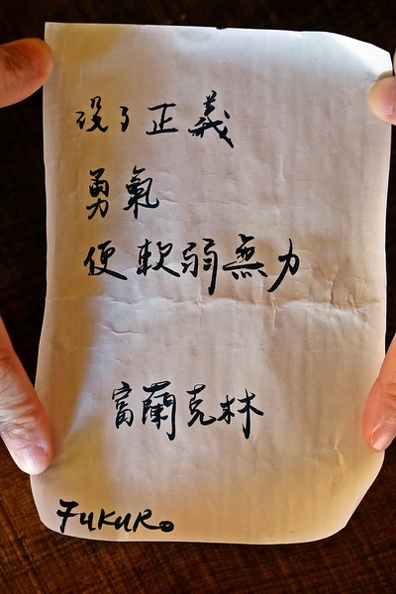 沒了正義
勇氣
便軟弱無力
富蘭克林
FUKURO